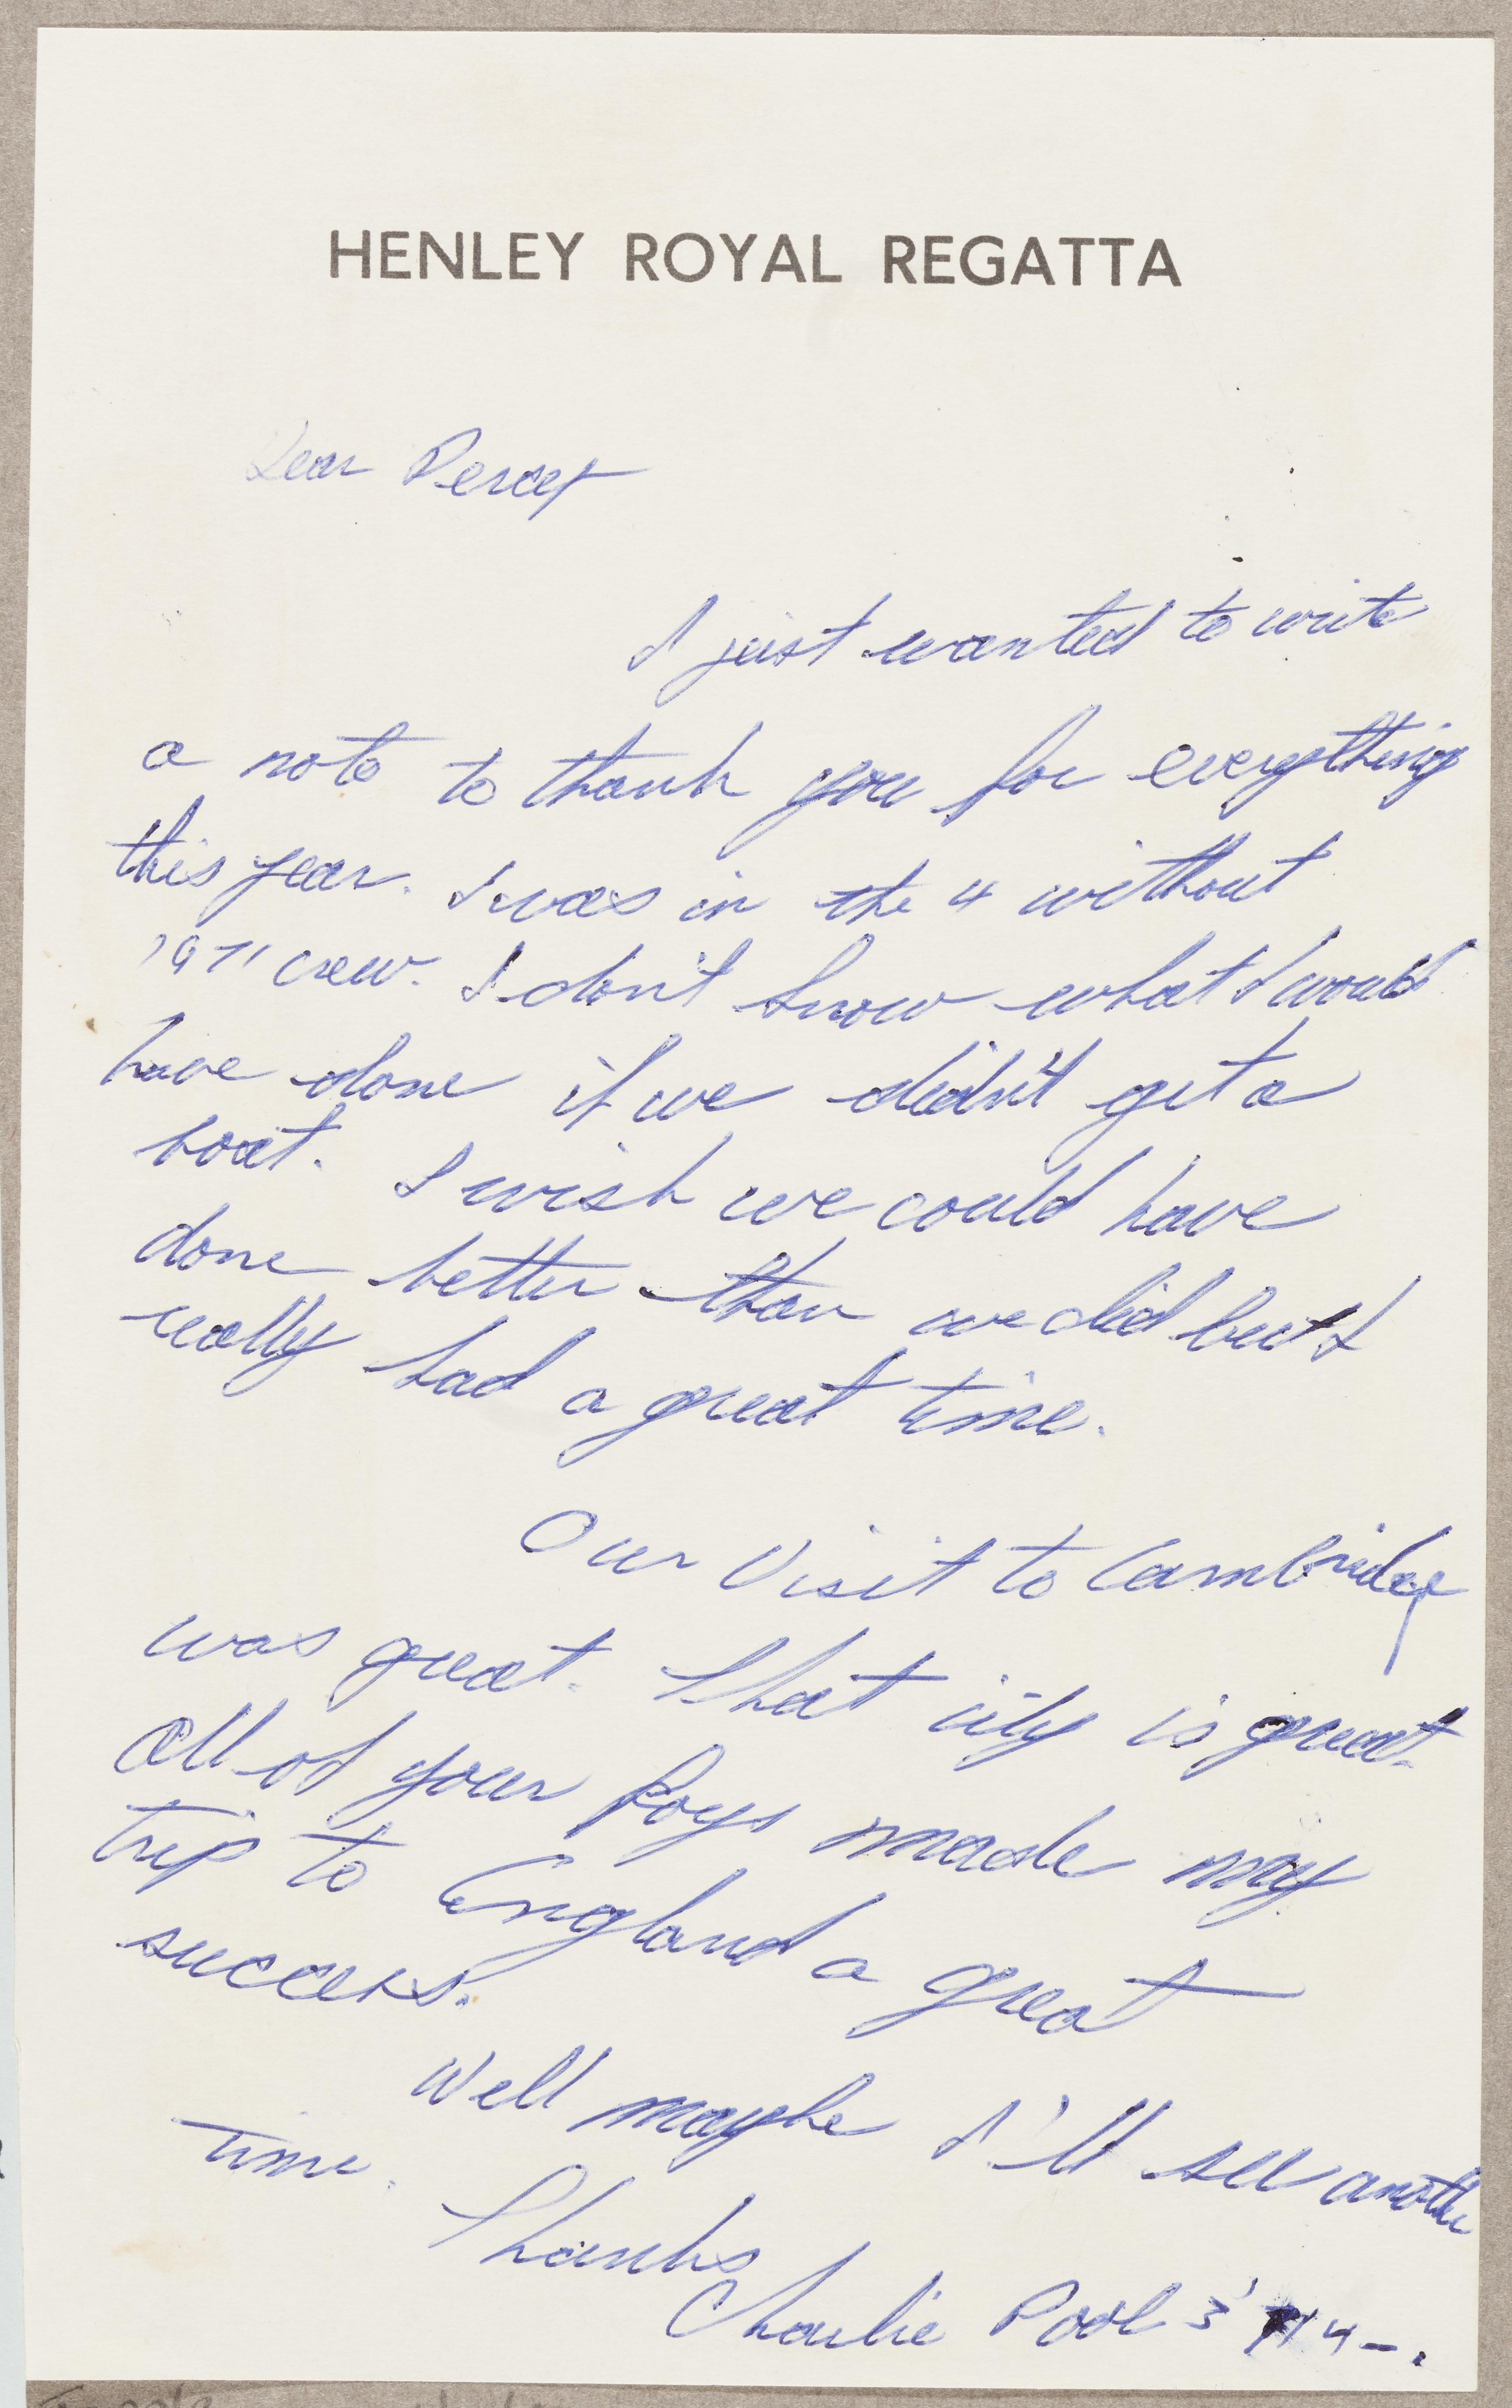 HENLEY ROYAL REGATTA
Dear Percy
I just wanted to write
a note to thank you for everything
this year. I was in the 4 without
1971 crew. I don't know what I would
have done if we didn't get a
boat. I wish we could have
done better than we did but I
really had a great time.
Our Visit to Cambridge
was great. That city is great.
All of your boys made my
trip to England a great
success.
Well maybe I'll see another
time.
Thanks
Charlie Poole 3' 71 4-.